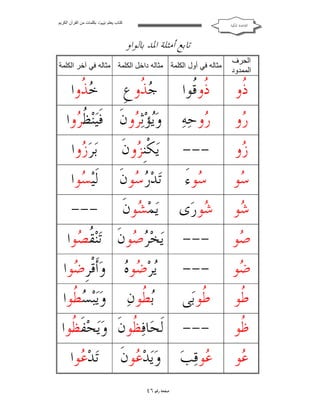 كتاب يعلم تهجيات بكلمات من القرآن الكريم
القاعدة المكية
تابع أمثلة المد بالواو
الحرف الممدود مثاله في أول الكلمة مثاله داخل الكلمة مثاله في آخر الكلمة
ذُو ذُوقُوا جُذُوعِ خُذُوا
رُو رُوحِهِ وَيُؤْثِرُونَ فَيَنْظُرُوا
زُو --- يَكْنِزُونَ بَرَزُوا
سُو سُوءَ تَدْرُسُونَ لَيْسُوا
شُو شُورَى يَمْشُونَ ---
صُو --- يَخْرُصُونَ تَنْقُصُوا
ضُو --- يُرْضُوهُ وَأَقْرِضُوا
طُو طُوبَى بُطُونِ وَيَبْسُطُوا
ظُو --- لَحَافِظُونَ وَيَحْفَظُوا
عُو عُوقِبَ وَيَدْعُونَ تَدْعُوا
صفحة رقم ٤٦